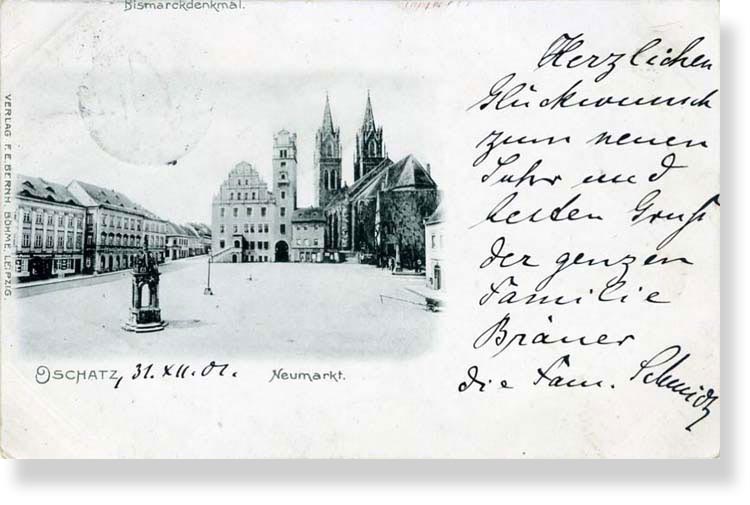 Bismarckdenkmal.
VERLAG F. E. BERNH. BÖHME, LEIPZIG.
Herzlichen
Glückwunsch
zum neuen
Jahr und
besten Gruß
der ganzen
Familie
Bräuer
die Fam. Schmidt
OSCHATZ, 31. XII. 01.
Neumarkt.